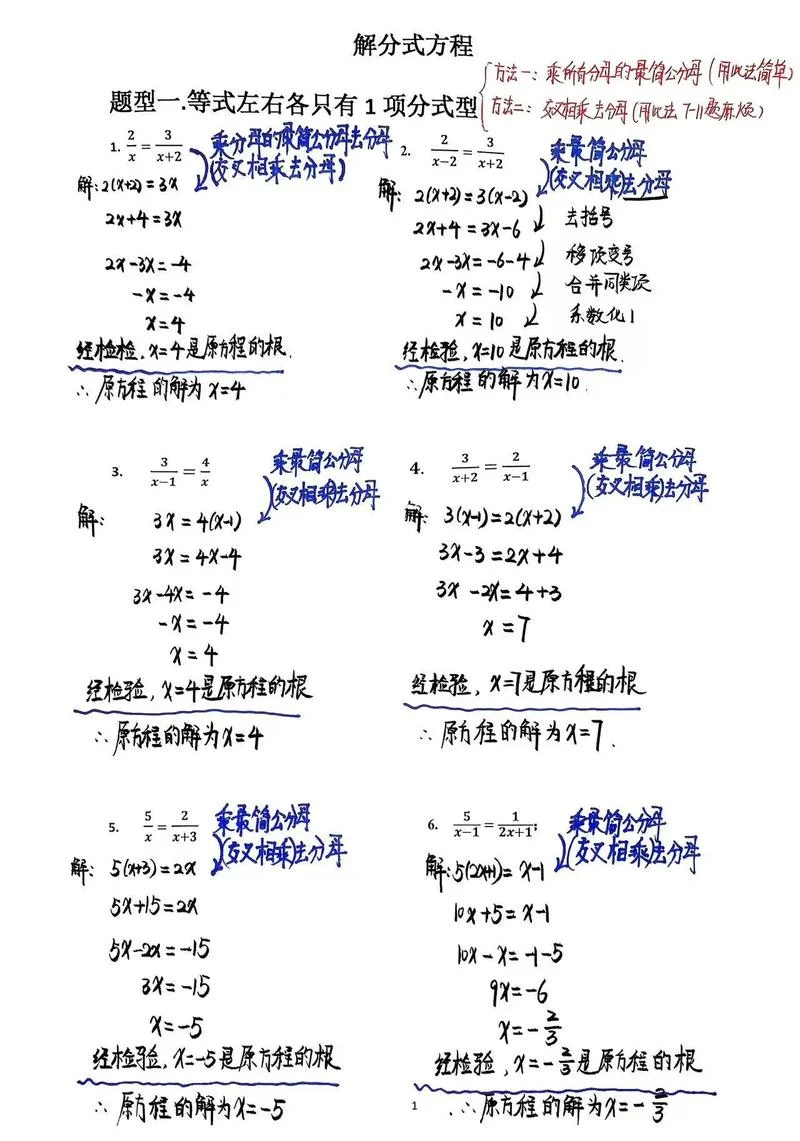 解分式方程
方法一：乘所有分母的最简公分母（用此法简单）
题型一.等式左右各只有 1 项分式型
方法二：交叉相乘去分母（用此法 7-11题麻烦）
1. 2/x = 3/(x+2)
乘分母的最简公分母去分母
(交叉相乘去分母)
解：2(x+2)=3x
2x+4=3x
2x-3x=-4
-x=-4
x=4
经检检，x=4是原方程的根.
∴ 原方程的解为 x=4
2. 2/(x−2) = 3/(x+2)
乘最简公分母
(交叉相乘)去分母
解：2(x+2)=3(x-2)
2x+4=3x-6 去括号
2x-3x=-6-4 移项变号
-x=-10 合并同类项
x=10 系数化1
经检验，x=10是原方程的根.
∴原方程的解为x=10.
3. 3/(x−1) = 4/x
乘最简公分母
(交叉相乘)去分母
解：3x=4(x-1)
3x=4x-4
3x-4x=-4
-x=-4
x=4
经检验，x=4是原方程的根
∴ 原方程的解为x=4
4. 3/(x+2) = 2/(x−1)
乘最简公分母
(交叉相乘)去分母
解：3(x-1)=2(x+2)
3x-3=2x+4
3x-2x=4+3
x=7
经检验，x=7是原方程的根
∴ 原方程的解为x=7.
5. 5/x = 2/(x+3)
乘最简公分母
(交叉相乘)去分母
解：5(x+3)=2x
5x+15=2x
5x-2x=-15
3x=-15
x=-5
经检验，x=-5是原方程的根
∴ 原方程的解为x=-5
6. 5/(x−1) = 1/(2x+1);
乘最简公分母
(交叉相乘)去分母
解：5(2x+1)=x-1
10x+5=x-1
10x-x=-1-5
9x=-6
x=-2/3
经检验，x=-2/3是原方程的根
∴原方程的解为x=-2/3
1